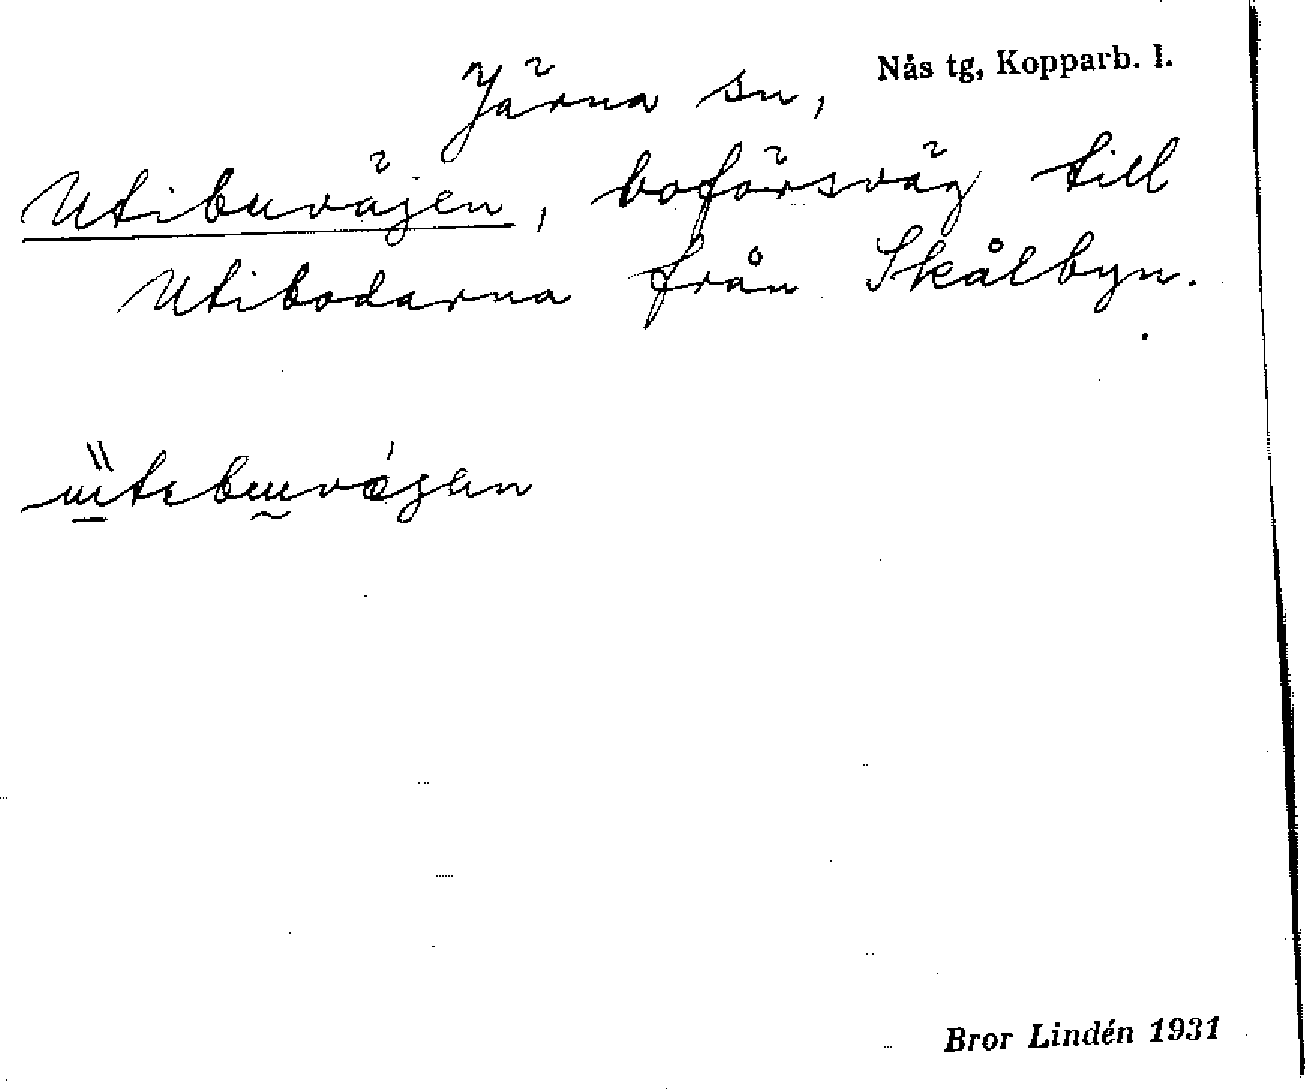 Järna sn, Nås tg, Kopparb. l.
Utibuvägen, boförsväg till
Utibodarna från Skålbyn.
Bror Lindén 1931